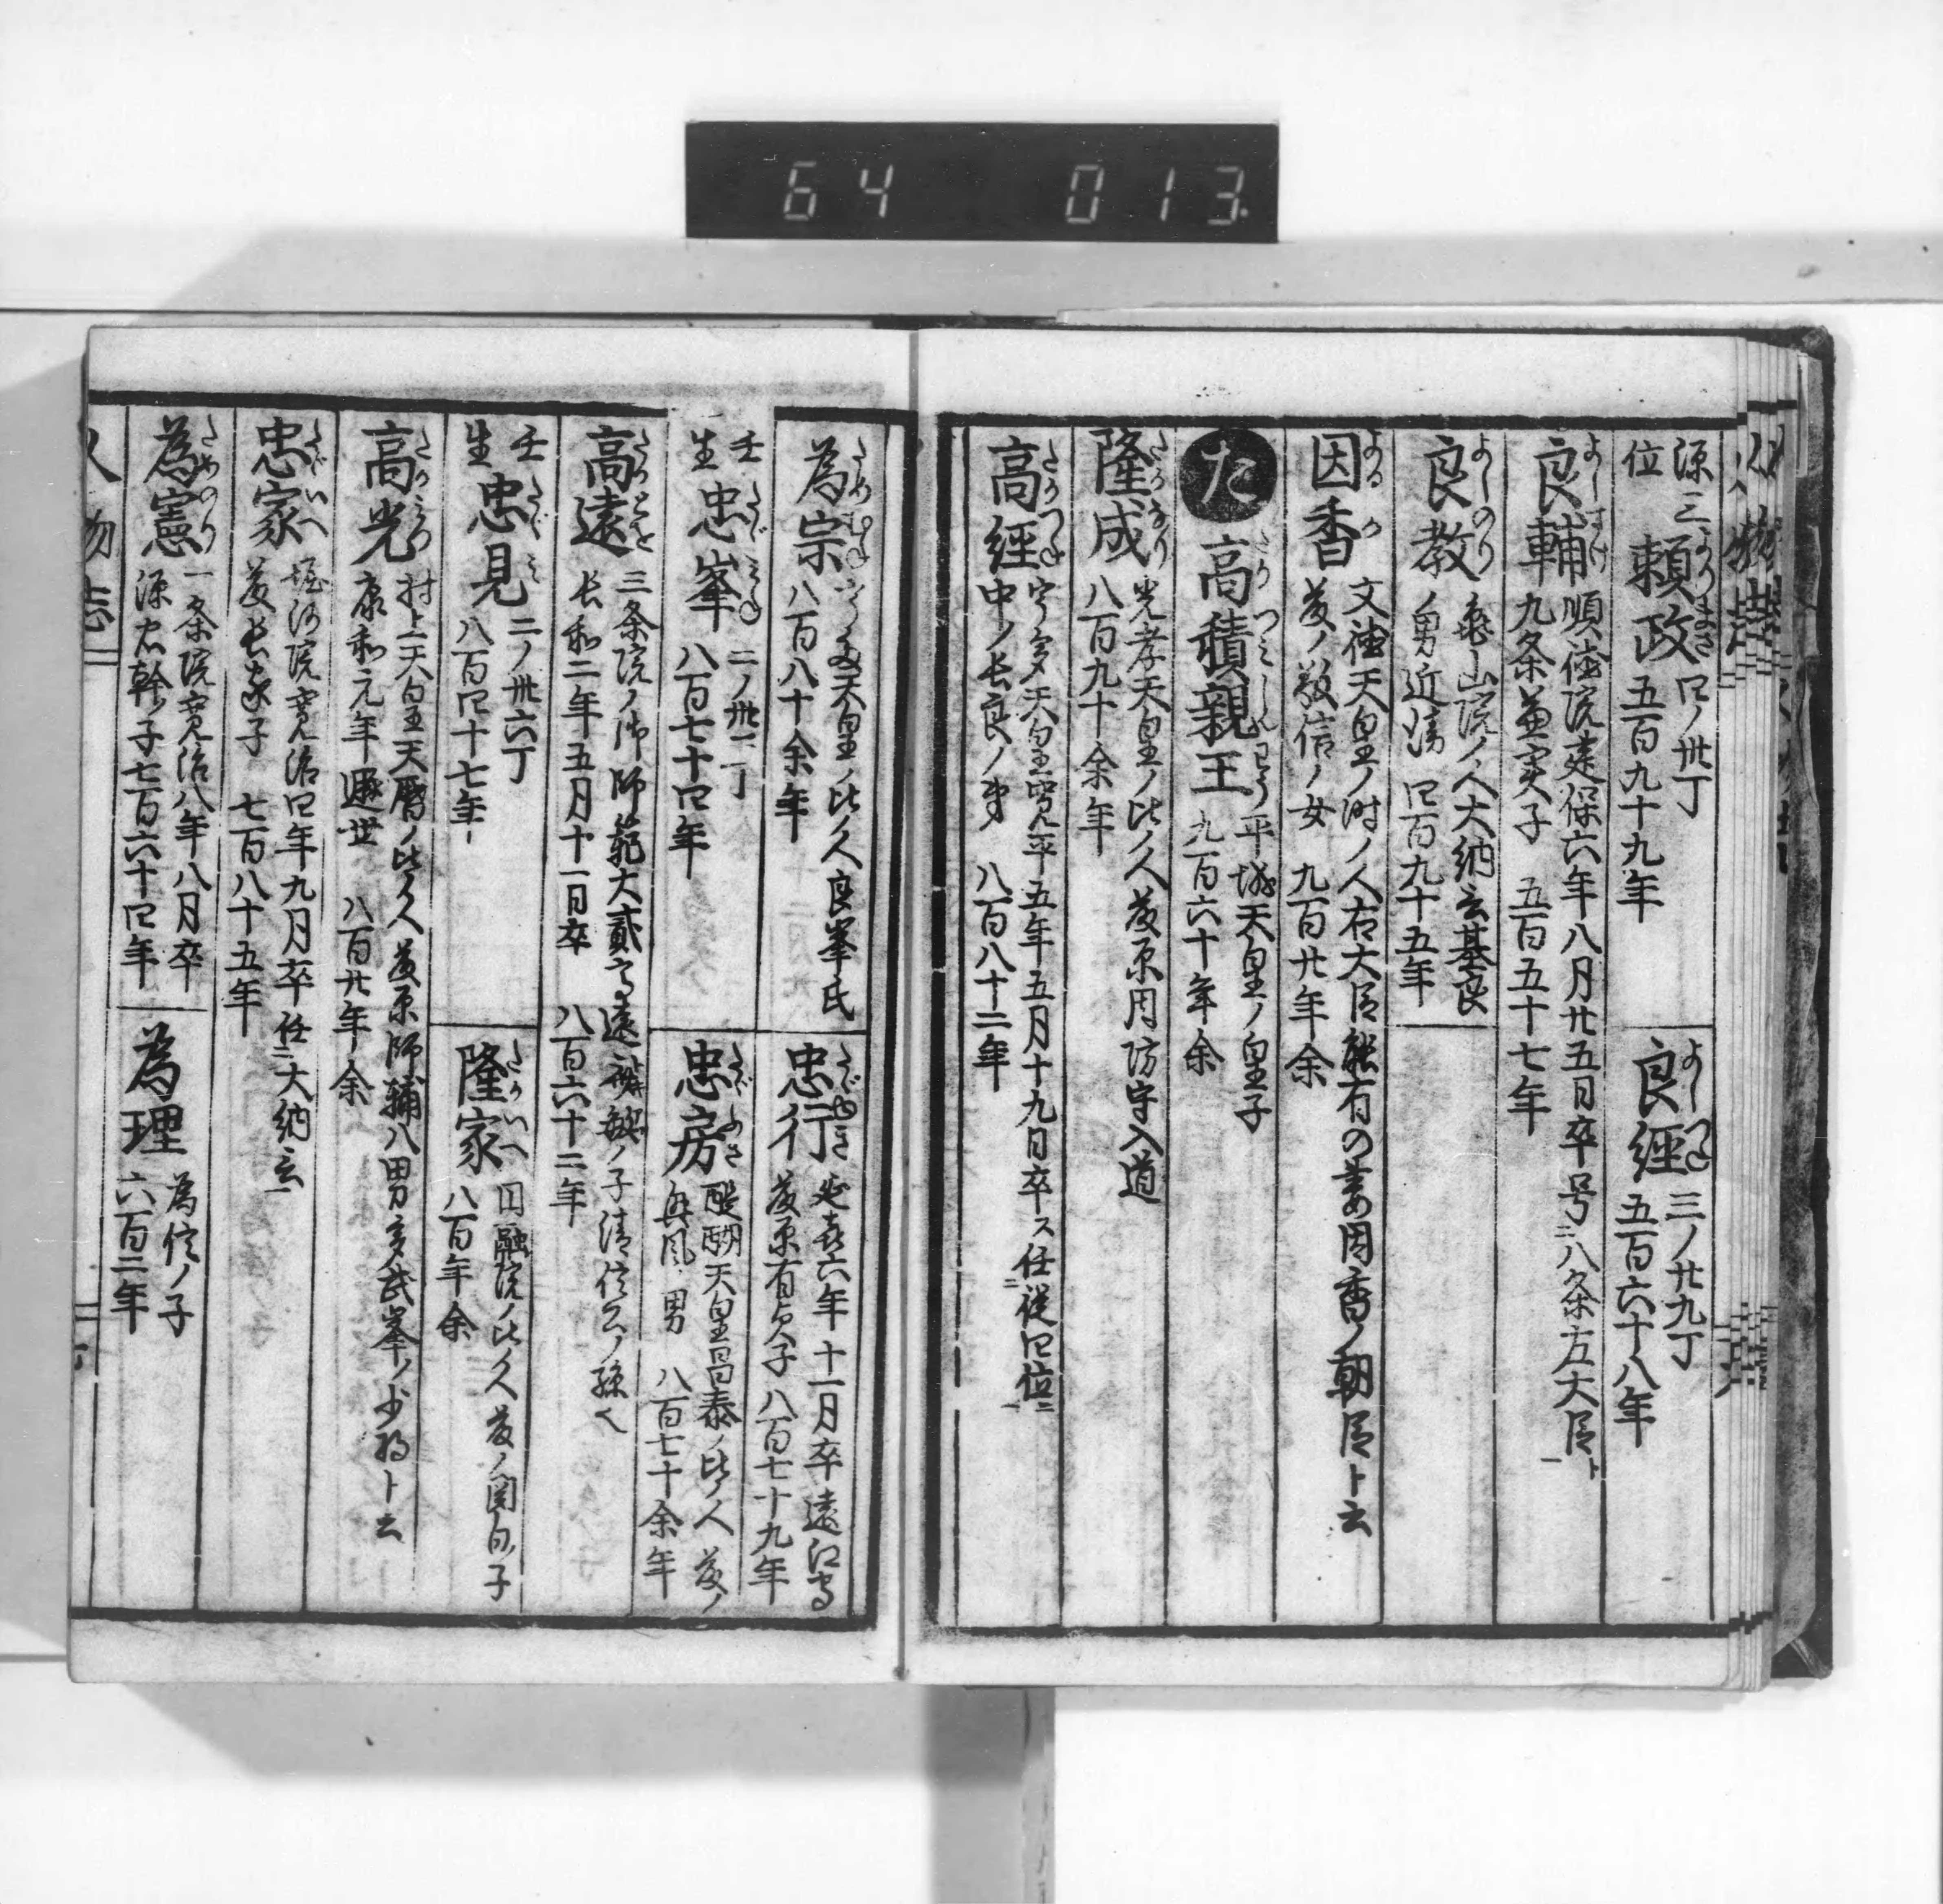 64 013
源三位 頼政 よりまさ 四ノ卅丁
五百九十九年
良經 よしつね 三ノ廿九丁
五百六十八年
良輔 よしすけ 順徳院建保六年八月廿五日卒号ニ八条左大臣ト一
九条兼実子 五百五十七年
良教 よしのり 亀山院ノ人大納言基良
ノ男近衛 四百九十五年
因香 よるか 文徳天皇ノ時ノ人右大臣能有の妻因香ノ朝臣ト云
藤ノ敬信ノ女 九百廿年余
た
高積親王 たかつみしんわう 平城天皇ノ皇子
九百六十年余
隆成 たかなり 光孝天皇ノ比ノ人 藤原周防守入道
八百九十余年
高經 たかつね 宇多天皇寛平五年五月十九日卒ス任ニ従四位ニ一
中ノ長良ノ弟 八百八十二年
為宗 ためむね 宇多天皇ノ比ノ人良峯氏
八百八十余年
忠行 たゞゆき 延喜六年十一月卒 遠江守
藤原有貞ノ子 八百七十九年
壬生 忠峯 たゞみね 二ノ卅二丁
八百七十四年
忠房 たゞふさ 醍醐天皇昌泰ノ比ノ人 藤ノ
興風ノ男 八百七十余年
高遠 たかとを 三条院ノ御師範大貳高遠 齊敏ノ子清信公ノ孫也
長和二年五月十一日卒 八百六十二年
壬生 忠見 たゞみ 二ノ卅六丁
八百四十七年
隆家 たかいへ 円融院ノ比ノ人 藤ノ関白ノ子
八百年余
高光 たかみつ 村上天皇天暦ノ比ノ人 藤原師輔八男多武峯ノ少将ト云
康和元年遁世 八百廿年余
忠家 たゞいへ 堀河院寛治四年九月卒 任ニ大納言一
藤長家子 七百八十五年
為憲 ためのり 一条院寛治八年八月卒
源忠幹ノ子 七百六十四年
為理 為信ノ子
六百二年
人物志二